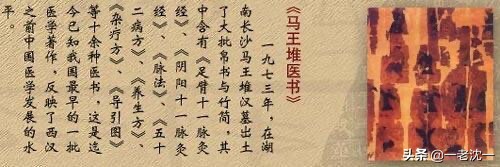 《马王堆医书》
一九七三年，在湖
南长沙马王堆汉墓出土
了大批帛书与竹简，其
中含有《足臂十一脉灸
经》、《阴阳十一脉灸
经》、《脉法》、《五十
二病方》、《养生方》、
《杂疗方》、《导引图》
等十余种医书，这是迄
今已知我国最早的一批
医学著作，反映了西汉
之前中国医学发展的水
平。
头条 @一老沈一